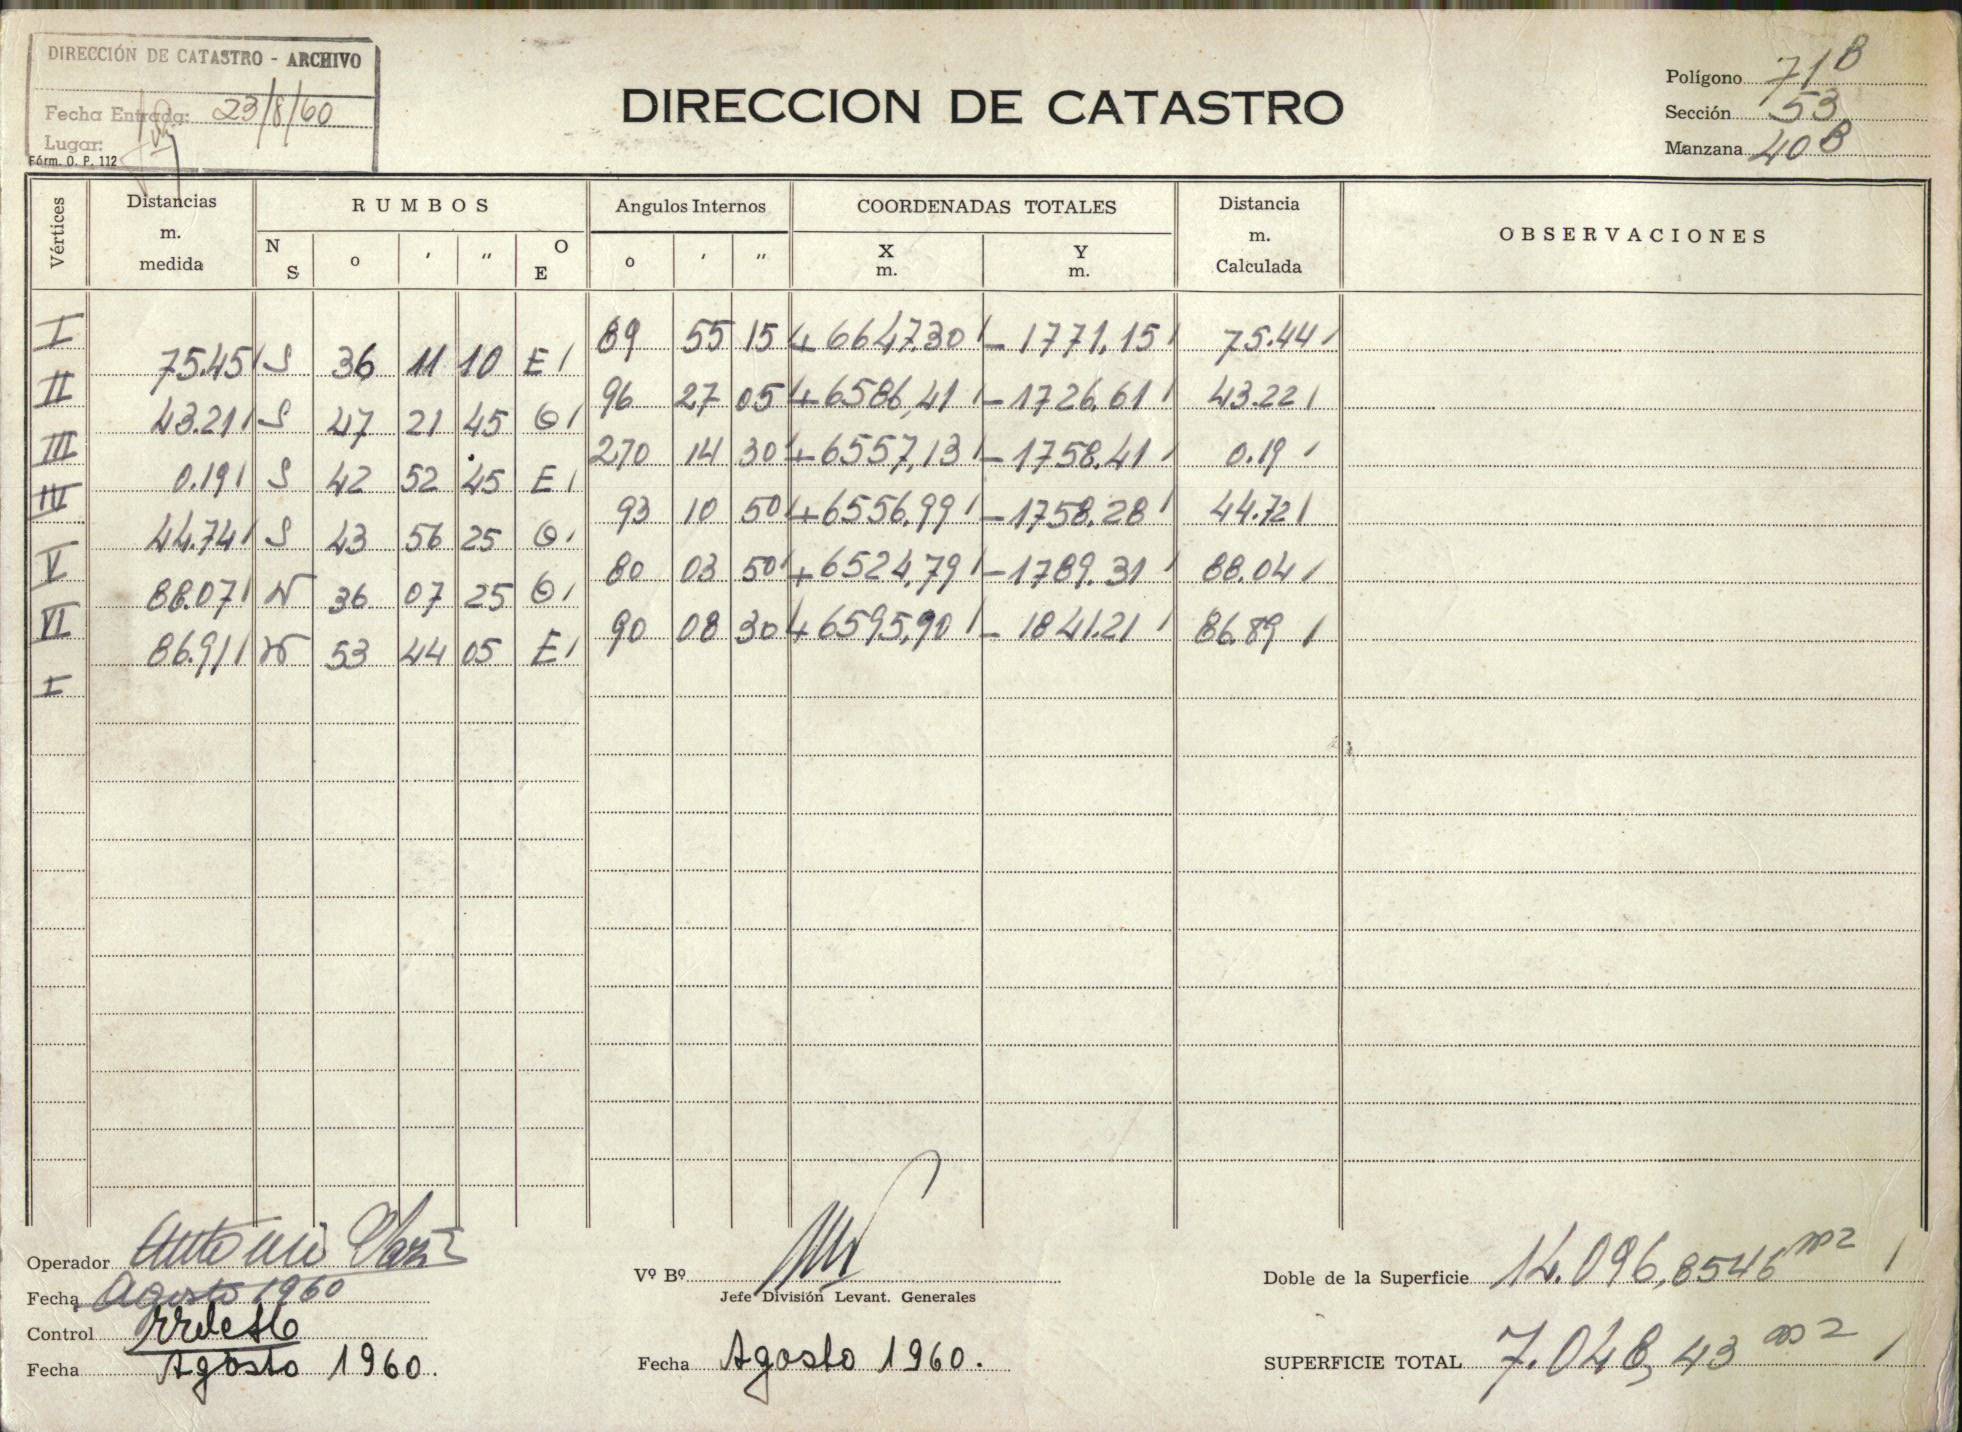 DIRECCIÓN DE CATASTRO - ARCHIVO
Fecha Entrada: 23/8/60
Lugar:
Fórm. O. P. 112
DIRECCION DE CATASTRO
Polígono 71B
Sección 53
Manzana 40B
Vértices Distancias m. medida RUMBOS N S o ' " O E Angulos Internos o ' " COORDENADAS TOTALES X m. Y m. Distancia m. Calculada OBSERVACIONES
I 89 55 15 +6647.30 -1771.15 75.44
75.45 S 36 11 10 E
II 96 27 05 +6586,41 -1726.61 43.22
43.21 S 47 21 45 O
III 270 14 30 +6557,13 -1758.41 0.19
0.19 S 42 52 45 E
IV 93 10 50 +6556.99 -1758.28 44.72
44.74 S 43 56 25 O
V 80 03 50 +6524,79 -1789.31 88.04
88.07 N 36 07 25 O
VI 90 08 30 +6595,90 -1841.21 86.89
86.91 N 53 44 05 E
I
Operador Antonio
Fecha Agosto 1960
Control
Fecha Agosto 1960.
Vº Bº
Jefe División Levant. Generales
Fecha Agosto 1960.
Doble de la Superficie 14.096,8546 m2
SUPERFICIE TOTAL 7.048,43 m2